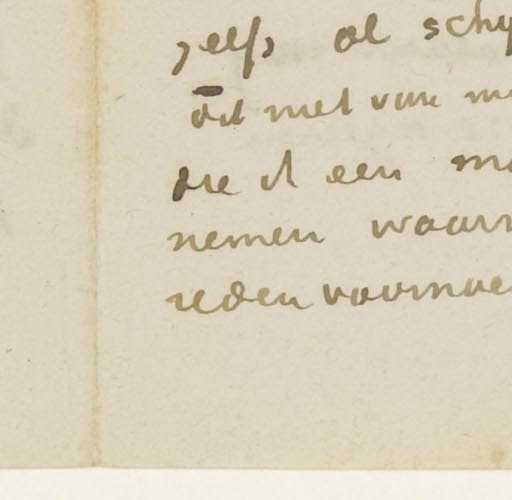 zelfs al schy
dit met van m
die ik een m
nemen waar
reden voorna